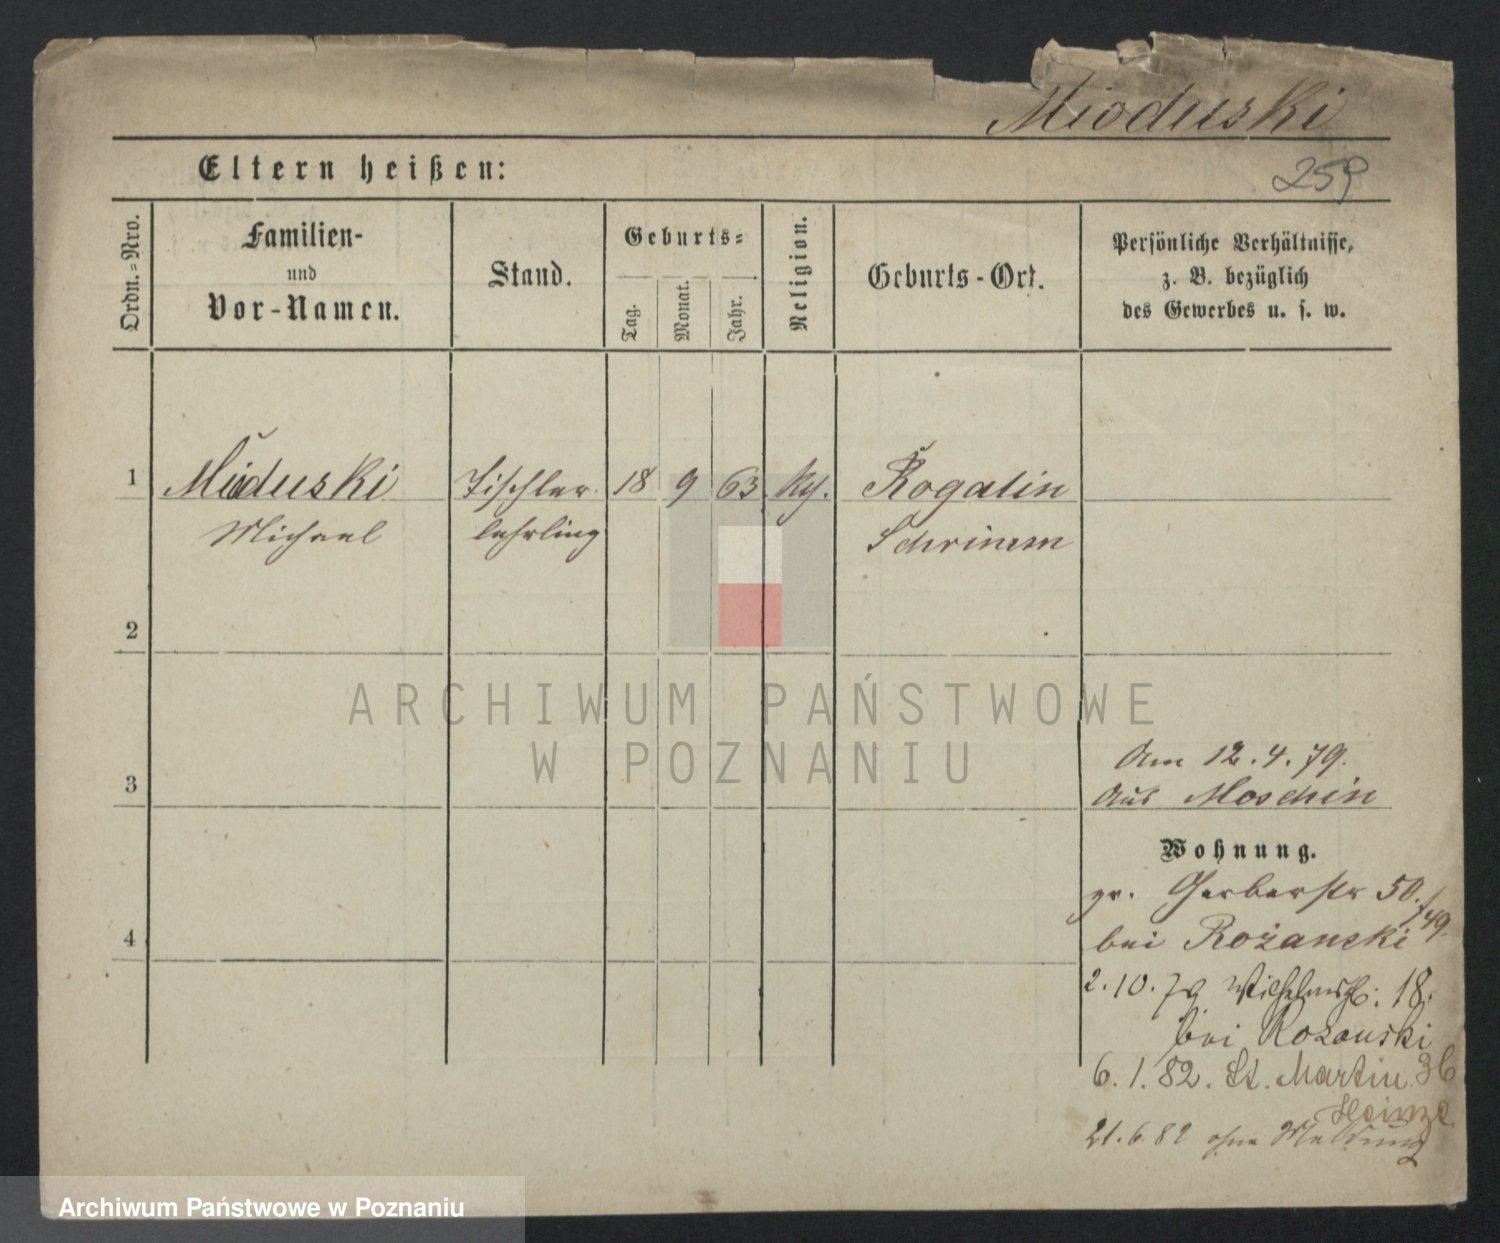 Mioduski
259
Eltern heißen:
Ordn.-Nro.
Familien-
und
Vor-Namen.
Stand.
Geburts-
Tag.
Monat.
Jahr.
Religion.
Geburts-Ort.
Persönliche Verhältnisse,
z. B. bezüglich
des Gewerbes u. s. w.
1 Mioduski Tischler 18 9 63 Rogalin
Michael lehrling Schrimm
2
ARCHIWUM PAŃSTWOWE
W POZNANIU
Am 12.4.79.
3 aus Moschin
Wohnung.
gr. Gerberstr 50./49.
4 bei Rożanski
2.10.79 Wilhelmspl: 18.
bei Rozanski
6.1.82. St. Martin 36
Heinze
21.6.82 ohne Meldung
Archiwum Państwowe w Poznaniu